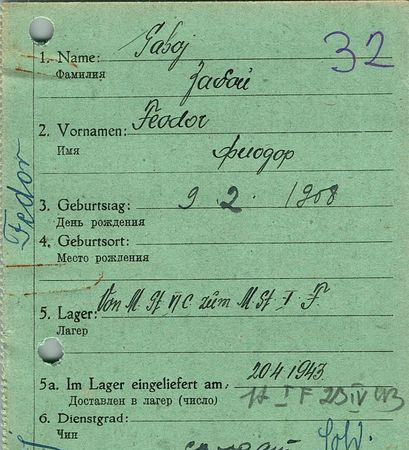 32
1. Name: Saboj
Фамилия Забой
2. Vornamen: Feodor
Имя Фиодор
Fedor
3. Geburtstag: 9 2. 1908
День рождения
4. Geburtsort:
Место рождения
5. Lager: Von M. St VI C. zum M St. I F.
Лагерь
5a. Im Lager eingeliefert am, 20 4 1943
Доставлен в лагер (число) I F IV
6. Dienstgrad: Sold.
Чин